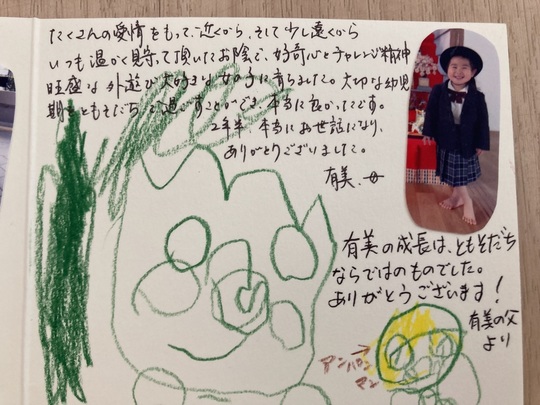 たくさんの愛情をもって、近くから、そして少し遠くから
いつも温かく見守って頂いたお陰で、好奇心とチャレンジ精神
旺盛な外遊び大好きな女の子に育ちました。大切な幼児
期をともそだちで過ごすことができ、本当に良かったです。
2年半、本当にお世話になり、
ありがとうございました。
有美.
有美の成長は、ともそだち
ならではのものでした。
ありがとうございます！
有美の父
より
アンパン
マン